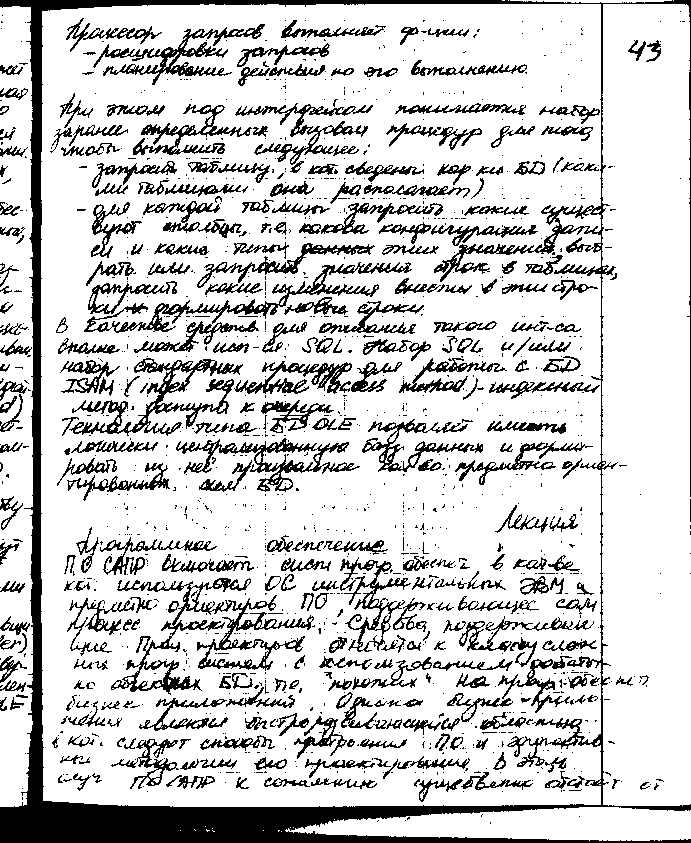 Процессор запросов выполняет ф-ции:
- расшифровки запросов
- планирование действия по его выполнению.
43
При этом под интерфейсом понимается набор
заранее определенных вызовов процедур для того,
чтобы выполнить следующее:
- запросить таблицу, в кот. сведены кор-ки БД (каки-
ми таблицами она располагает)
- для каждой таблицы запросить какие сущест-
вуют столбцы, т.е. какова конфигурация запи-
си и какие типы данных этих значений, выб-
рать или запросить значения строк в таблицах,
запросить какие изменения внести в эти стро-
ки и формировать новые строки.
В качестве средств для описания такого инт-са
вполне может исп-ся SQL. Набор SQL и/или
набор стандартных процедур для работы с БД
ISAM (index sequential access method) - индексный
метод доступа к очереди.
Технология типа БД OLE позволяет иметь
логически централизованную базу данных и форми-
ровать из неё произвольное кол-во предметно ориен-
тированных схем БД.
Лекция
Программное обеспечение
ПО САПР включает сист. прогр. обеспеч., в кач-ве
кот. используются ОС инструментальных ЭВМ и
предметно ориентиров. ПО, поддерживающее сам
процесс проектирования. Средства, поддерживаю-
щие проц. проектиров. относятся к классу слож-
ных прогр. систем с использованием достаточ-
но объемных БД, т.е. "похожих" на прогр. обеспеч.
бизнес приложений. Однако бизнес-прило-
жения являются быстроразвивающейся областью
в кот. следуют способы построения ПО и эффектив-
ные методологии его проектирования. В этом
случ. ПО САПР к сожалению существенно отстаёт от